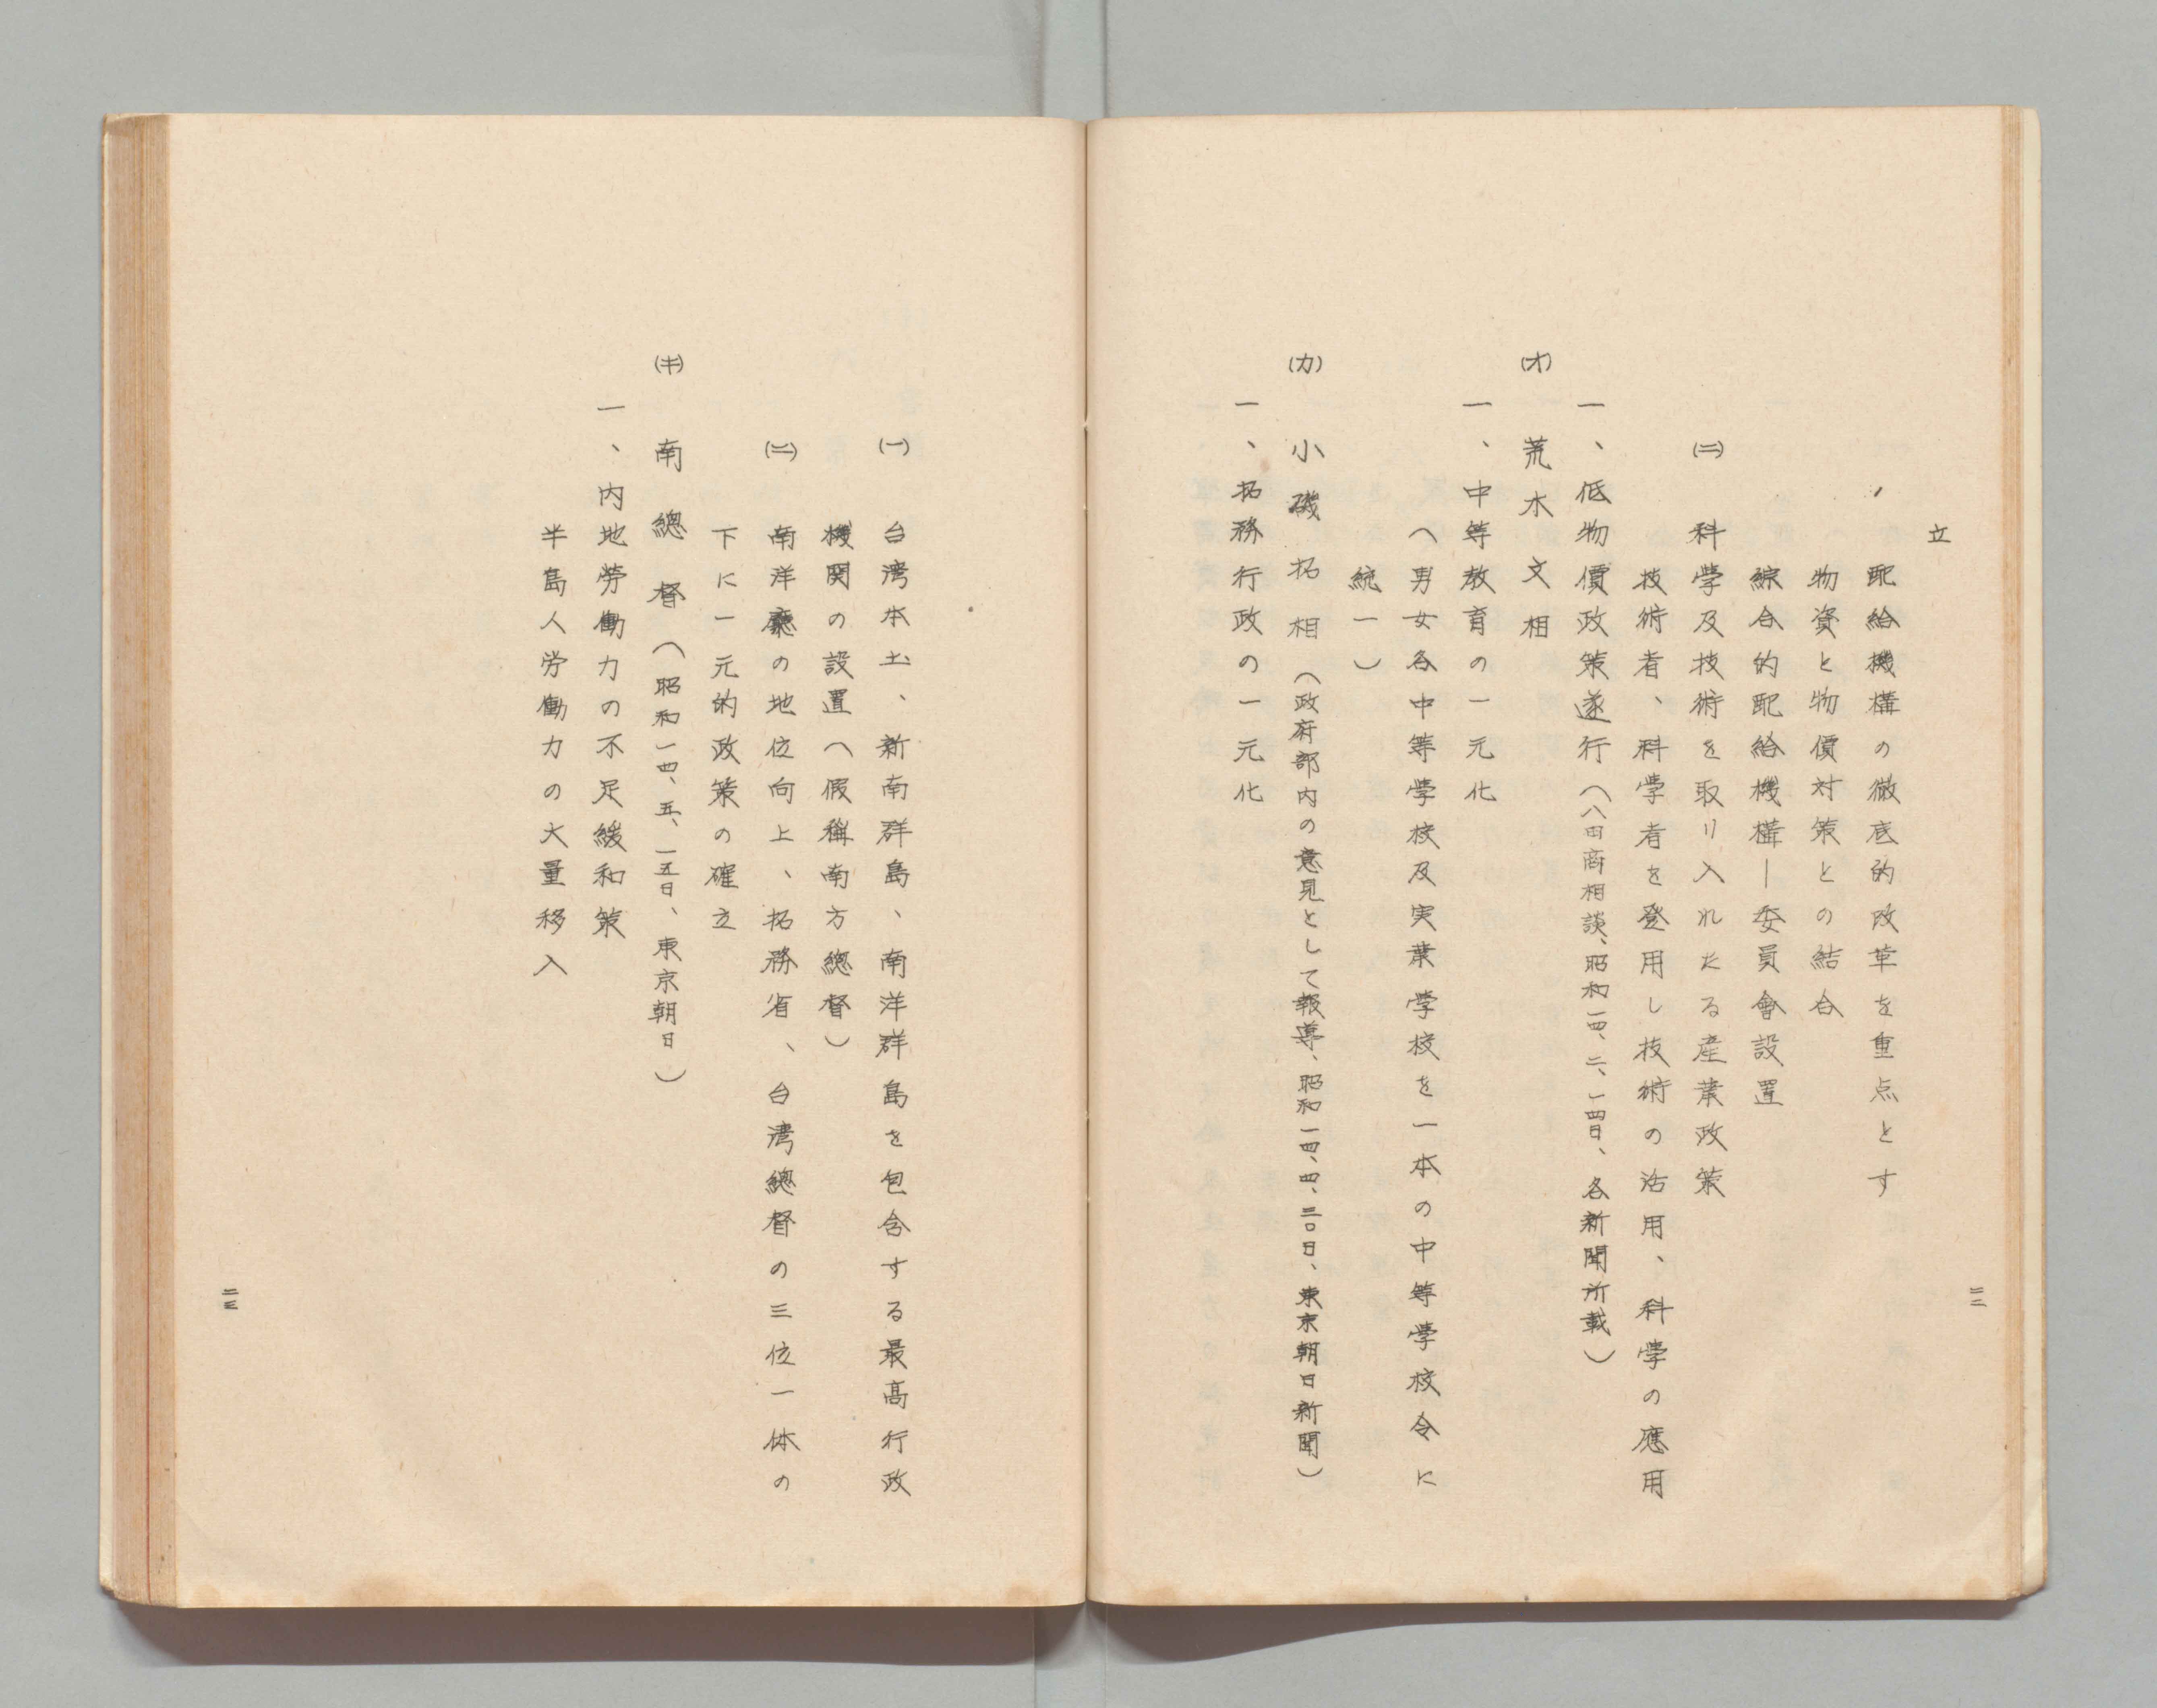 立
配給機構の徹底的改革を重点とす
物資と物價対策との結合
綜合的配給機構―委員會設置
(二) 科學及技術を取り入れたる産業政策
技術者、科学者を登用し技術の活用、科学の應用
一、低物價政策遂行(八田商相談、昭和一四、二、一四日、各新聞所載)
(オ) 荒木文相
一、中等教育の一元化
(男女各中等学校及実業学校を一本の中等学校令に
統一)
(カ) 小磯拓相(政府部内の意見として報導、昭和一四、四、二〇日、東京朝日新聞)
一、拓務行政の一元化
二二
(一) 台湾本土、新南群島、南洋群島を包含する最高行政
機関の設置(假稱南方總督)
(二) 南洋廳の地位向上、拓務省、台湾總督の三位一体の
下に一元的政策の確立
(キ) 南總督(昭和一四、五、一五日、東京朝日)
一、内地勞働力の不足緩和策
半島人労働力の大量移入
二三